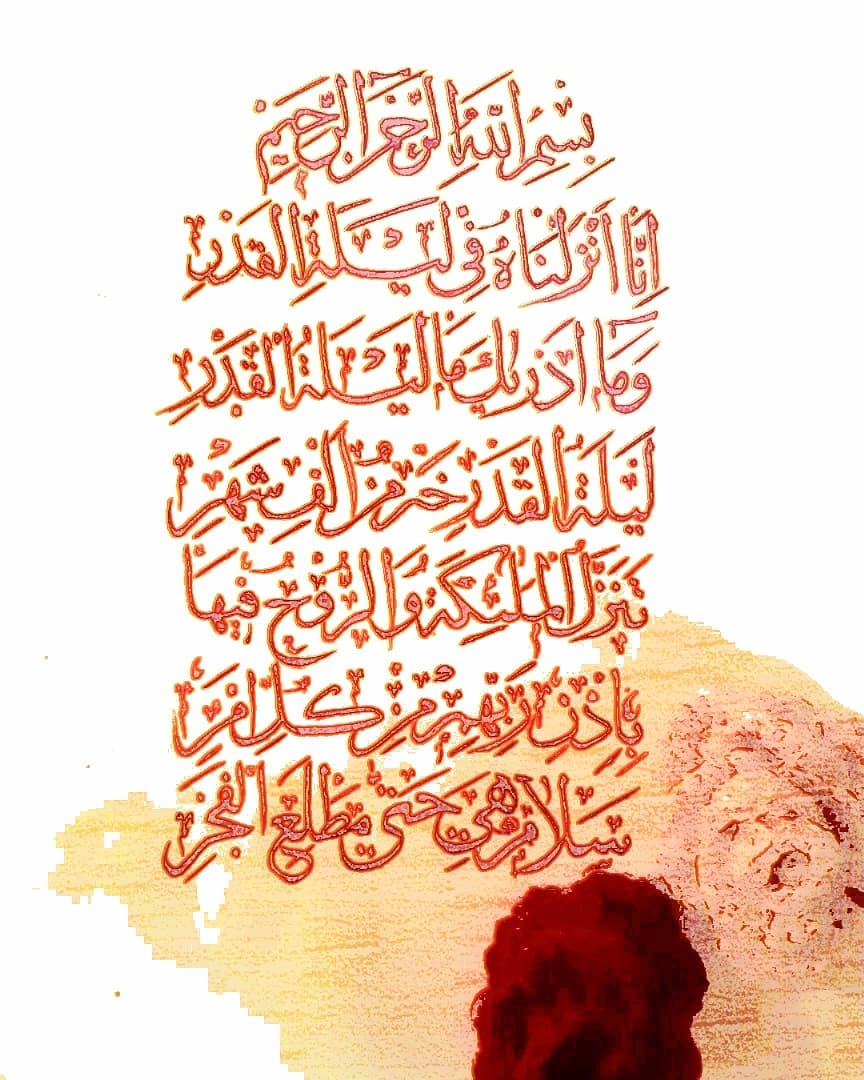 بِسْمِ اللَّهِ الرَّحْمَٰنِ الرَّحِيمِ
إِنَّا أَنْزَلْنَاهُ فِي لَيْلَةِ الْقَدْرِ
وَمَا أَدْرَيكَ مَا لَيْلَةُ الْقَدْرِ
لَيْلَةُ الْقَدْرِ خَيْرٌ مِنْ أَلْفِ شَهْرٍ
تَنَزَّلُ الْمَلَٰئِكَةُ وَالرُّوحُ فِيهَا
بِإِذْنِ رَبِّهِمْ مِنْ كُلِّ أَمْرٍ
سَلَامٌ هِيَ حَتَّى مَطْلَعِ الْفَجْرِ